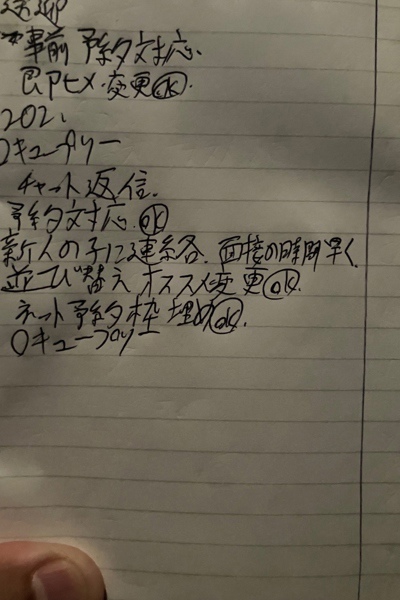 送迎
事前予約対応.
即ヒメ.変更OK.
202.
キュープリー
チャット返信.
予約対応.OK
新人の子に連絡.面接の時間早く
並び替えオススメ変更OK.
ネット予約枠埋めOK.
○キュープリー